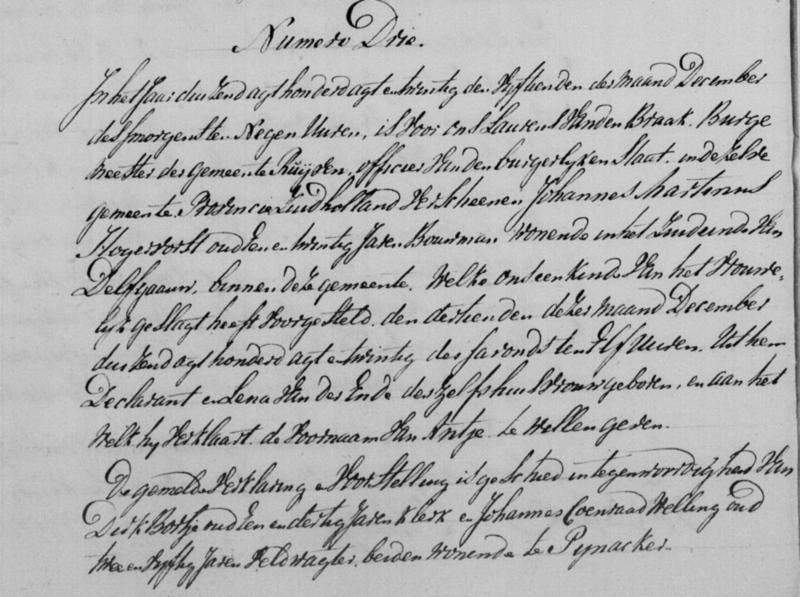 Numero Drie.
In het Jaar duizend agt honderd agt en twintig den Vyftienden der maand December
des smorgens ten Negen Uuren, is Voor ons Laurens Van den Braak. Burge
meester der gemeente Ruijven, officier Van den burgerlyken Staat in dezelve
gemeente, Provincie Zuidholland Verscheenen Johannes Martinus
Hogervorst oud Een en twintig Jaren Bouwman wonende in het Zuideinde Van
Delfgaauw, binnen deze gemeente. Welke ons een Kind Van het Vrouwe-
lyk geslagt heeft Voorgesteld. den dertienden dezer maand December
duizend agt honderd agt en twintig des savonds ten Elf Uuren. Uit hem
Declarant en Lena Van der Ende deszelfs huisvrouw geboren, en aan het
Welk hy Verklaart de Voornaam Van Antje te Willen geven.
De gemelde Verklaring en Voorstelling is geschied in tegenwoordigheid Van
Dirk Bortje oud Een en dertig Jaren Klerk en Johannes Coenraad Welling oud
twee en Vyftig Jaren Veldwagter, beiden wonende te Pynacker.